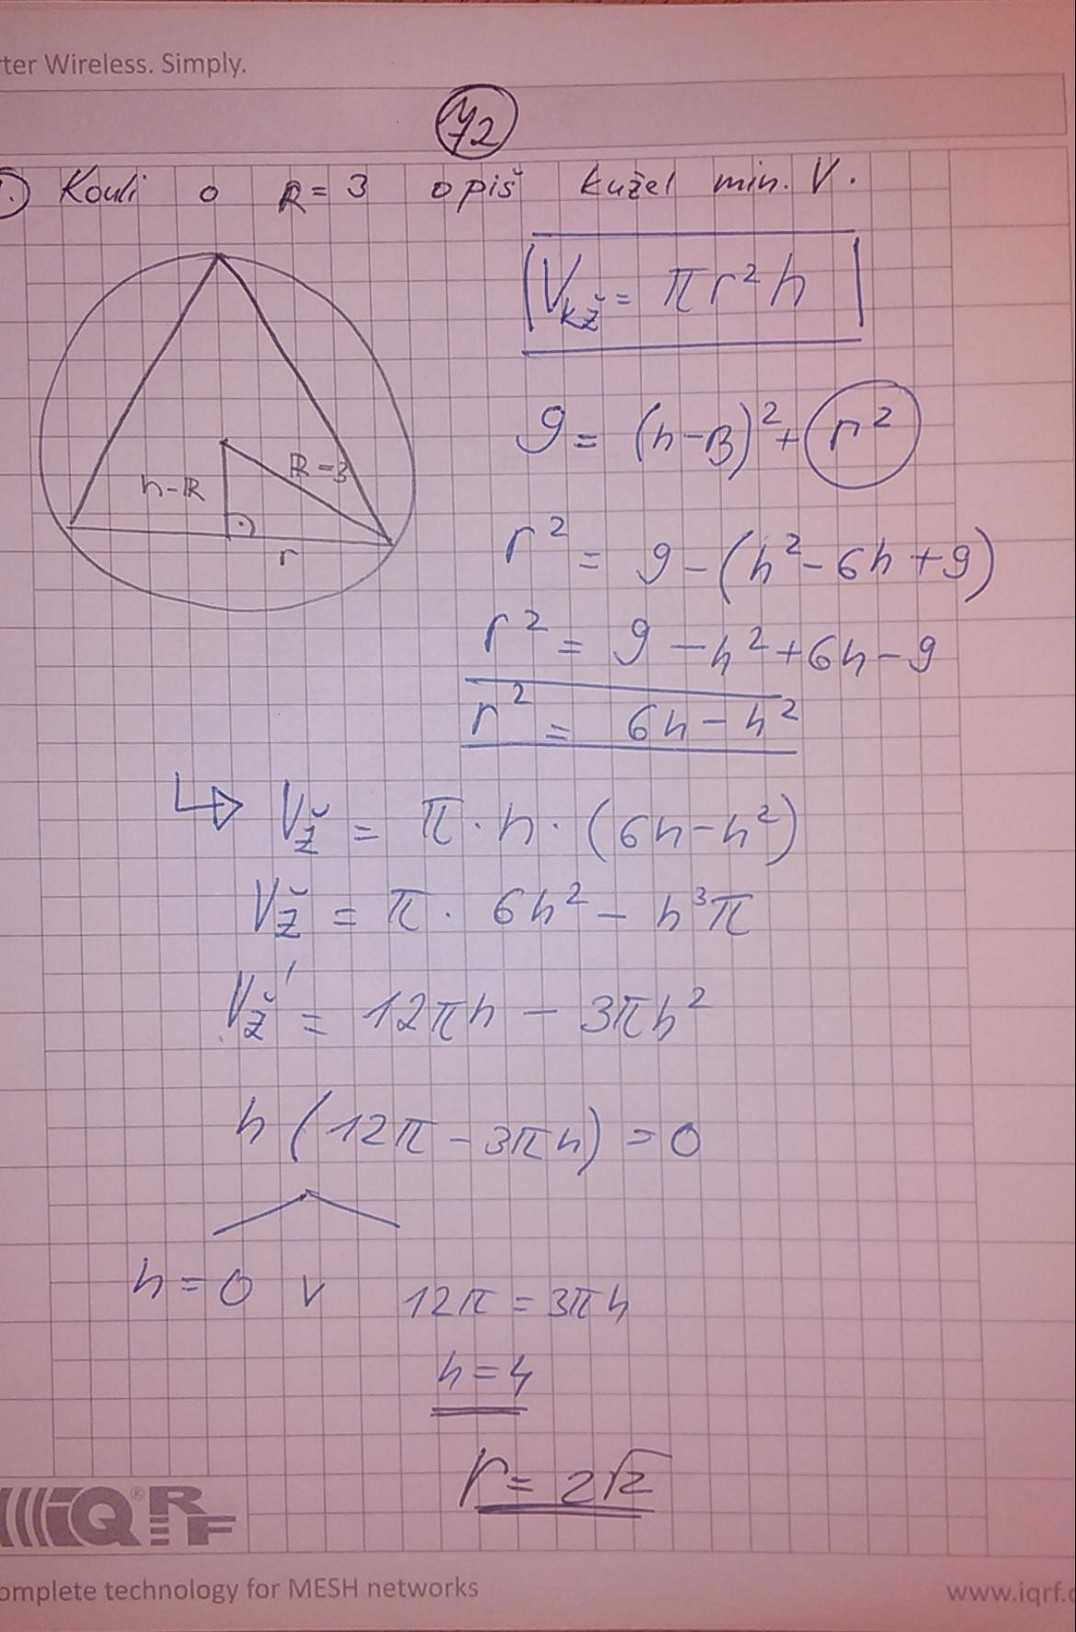 ter Wireless. Simply.
72
1.) Kouli o R = 3 opiš kužel min. V.
V_kž = π r² h
9 = (h-3)² + r²
h-R
R=3
r
r² = 9 - (h² - 6h + 9)
r² = 9 - h² + 6h - 9
r² = 6h - h²
↳ V_ž = π · h · (6h - h²)
V_ž = π · 6h² - h³π
V_ž' = 12πh - 3πh²
h (12π - 3πh) = 0
h = 0 v 12π = 3πh
h = 4
r = 2√2
IQRF®
omplete technology for MESH networks
www.iqrf.c